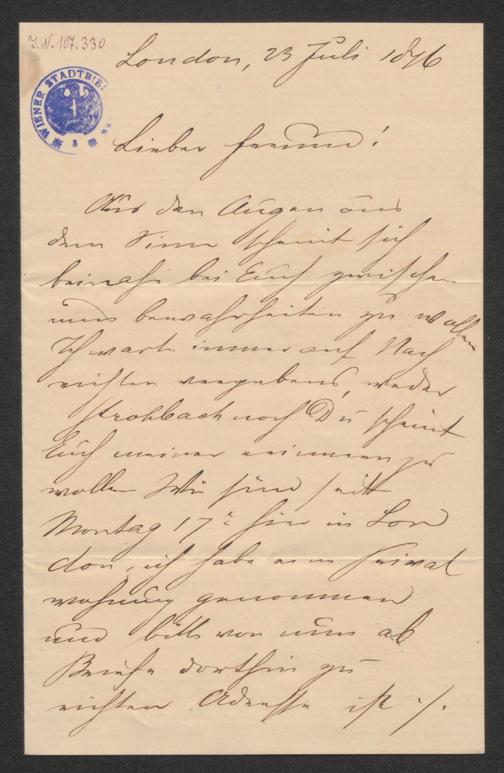 J.N. 107.330
WIENER STADTBIBL
London, 23 Juli 1876
Lieber Freund!
Aus den Augen aus
dem Sinn scheint sich
beinahe bei Euch zwischen
uns bewahrheiten zu wollen
Ich warte immer auf Nach
richten vergebens, weder
Strohbach noch Du scheint
Euch meiner erinnern zu
wollen Wir sind seit
Montag 17t hier in Lon
don, ich habe eine Privat
wohnung genommen
und bitte von nun ab
Briefe dorthin zu
richten Adresse ist ./.